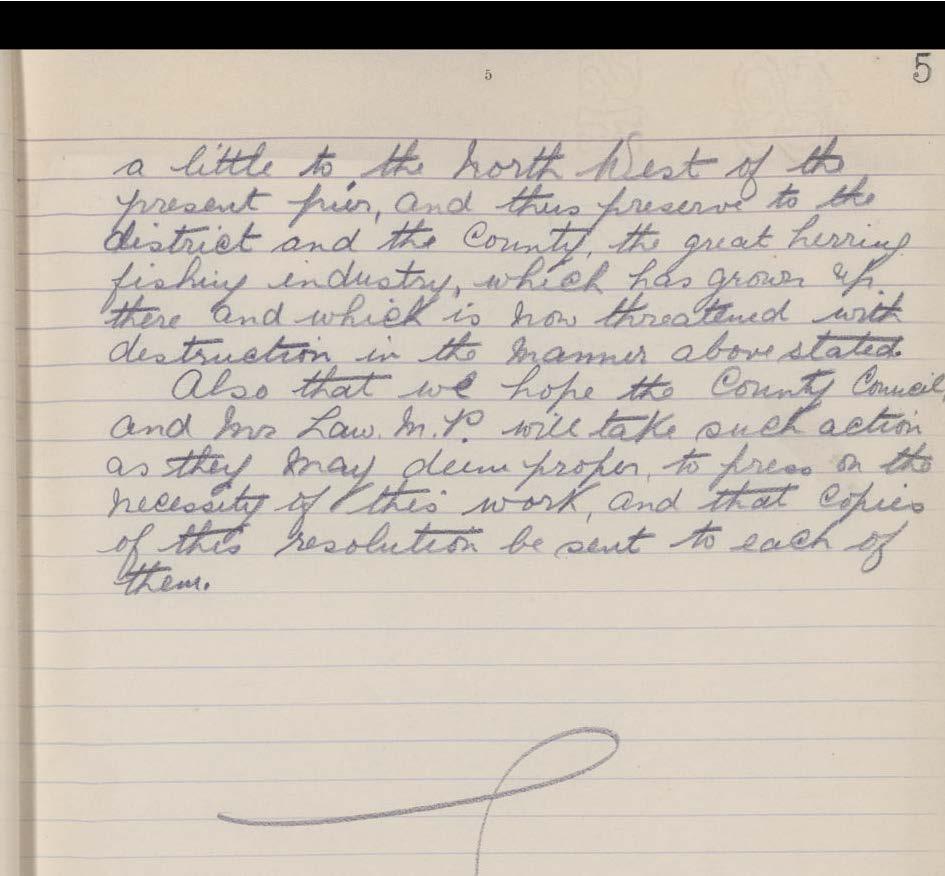 5
5
a little to, the North West of the
present pier, and thus preserve to the
district and the County, the great herring
fishing industry, which has grown up.
there and which is now threatened with
destruction in the manner above stated
Also that we hope the County Council,
and Mr Law. M.P. will take such action
as they may deem proper, to press on the
necessity of this work, and that Copies
of this resolution be sent to each of
them.